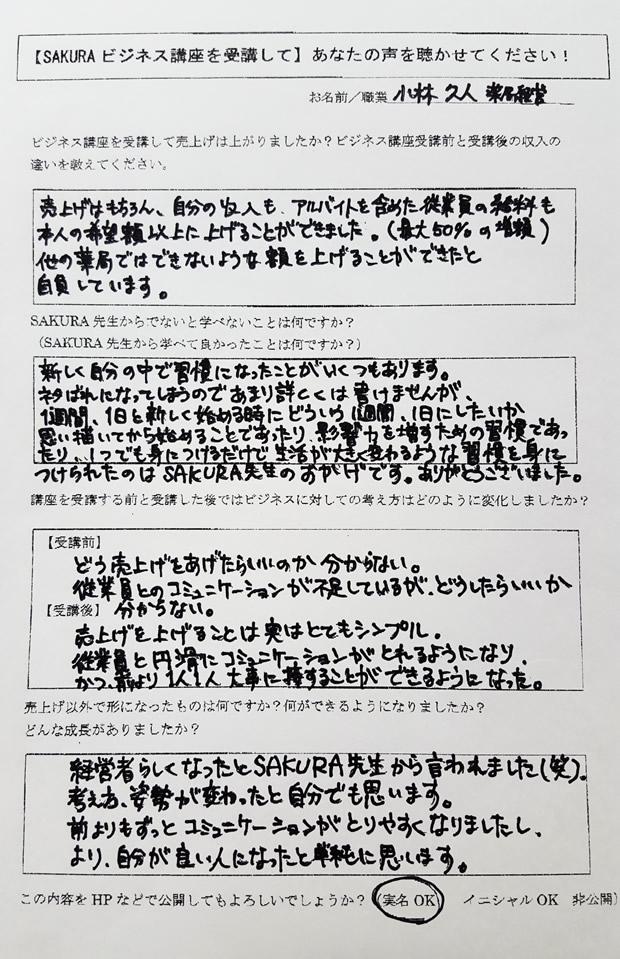 【SAKURA ビジネス講座を受講して】あなたの声を聴かせてください！
お名前／職業 小林 久人 薬局経営
ビジネス講座を受講して売上げは上がりましたか？ビジネス講座受講前と受講後の収入の
違いを教えてください。
売上げはもちろん、自分の収入も、アルバイトを含めた従業員の給料も
本人の希望額以上に上げることができました。(最大50%の増額)
他の薬局ではできないような額を上げることができたと
自負しています。
SAKURA 先生からでないと学べないことは何ですか？
（SAKURA 先生から学べて良かったことは何ですか？）
新しく自分の中で習慣になったことがいくつもあります。
ネタばれになってしまうのであまり詳しくは書けませんが、
1週間、1日を新しく始める時にどういう1週間、1日にしたいか
思い描いてから始めることであったり、影響力を増すための習慣であっ
たり、1つでも身につけるだけで生活が大きく変わるような習慣を身に
つけられたのはSAKURA先生のおかげです。ありがとうございました。
講座を受講する前と受講した後ではビジネスに対しての考え方はどのように変化しましたか？
【受講前】
どう売上げをあげたらいいのか分からない。
従業員とのコミュニケーションが不足しているが、どうしたらいいか
【受講後】分からない。
売上げを上げることは実はとてもシンプル。
従業員と円滑にコミュニケーションがとれるようになり、
かつ、前より1人1人大事に接することができるようになった。
売上げ以外で形になったものは何ですか？何ができるようになりましたか？
どんな成長がありましたか？
経営者らしくなったとSAKURA先生から言われました(笑)。
考え方、姿勢が変わったと自分でも思います。
前よりもずっとコミュニケーションがとりやすくなりましたし、
より、自分が良い人になったと単純に思います。
この内容を HP などで公開してもよろしいでしょうか？（実名 OK イニシャル OK 非公開）